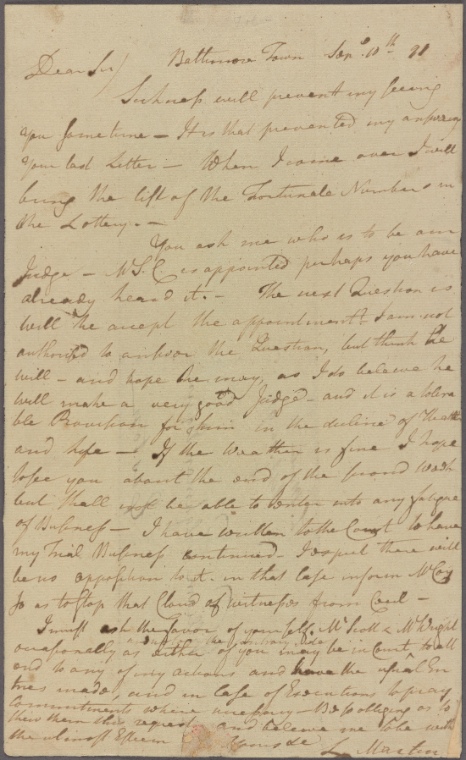 Baltimore Town Sepr. 10th 91
Dear Sir/
Sickness will prevent my seeing
you sometime — It is that prevented my answering
your last Letter — When I come over I will
bring the list of the Fortunate Numbers in
the Lottery. —
You ask me who is to be our
Judge — Mr S. C. is appointed perhaps you have
already heard it. — The next Question is
will he accept the appointment I am not
authorized to answer the Question, but think he
will — and hope he may, as I do believe he
will make a very good Judge — and it is a tolera
ble Provision for him in the decline of Health
and life — If the Weather is fine I hope
to see you about the end of the second week
but shall not be able to enter into any fatigue
of Business — I have written to the Court to have
my Trial Business continued — I expect there will
be no opposition to it. in that case inform McCoy
so as to stop that Cloud of witnesses from Cecil —
I must ask the favor of yourself, Mr Scott & Mr Wright
occasionally as either of you may be in Court, to att
end to any of my actions and have the usual En
tries made, and in case of Executions to pray
Commitments where necessary — Be so obliging as to
shew them this request, and believe me to be with
the utmost Esteem Yours &c
L. Martin